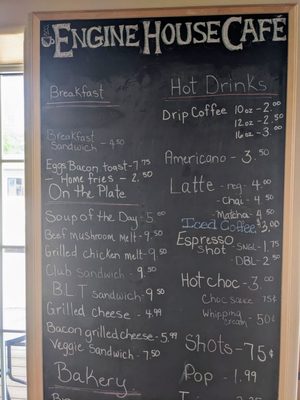 ENGINE HOUSE CAFÉ
Breakfast
Breakfast
Sandwich - 4.50
Eggs Bacon toast - 7.75
Home fries - 2.50
On the Plate
Soup of the Day - 5.00
Beef mushroom melt - 9.50
Grilled chicken melt - 9.50
Club sandwich - 9.50
BLT sandwich - 9.50
Grilled cheese - 4.99
Bacon grilled cheese - 5.99
Veggie Sandwich - 7.50
Bakery
Hot Drinks
Drip Coffee 10oz - 2.00
12oz - 2.50
16oz - 3.00
Americano - 3.50
Latte - reg - 4.00
- chai - 4.50
- Matcha - 4.50
Iced Coffee $3.00
Espresso
shot - SNGL - 1.75
- DBL - 2.50
Hot choc - 3.00
Choc sauce 75¢
Whipping
Cream 50¢
Shots - 75¢
Pop - 1.99